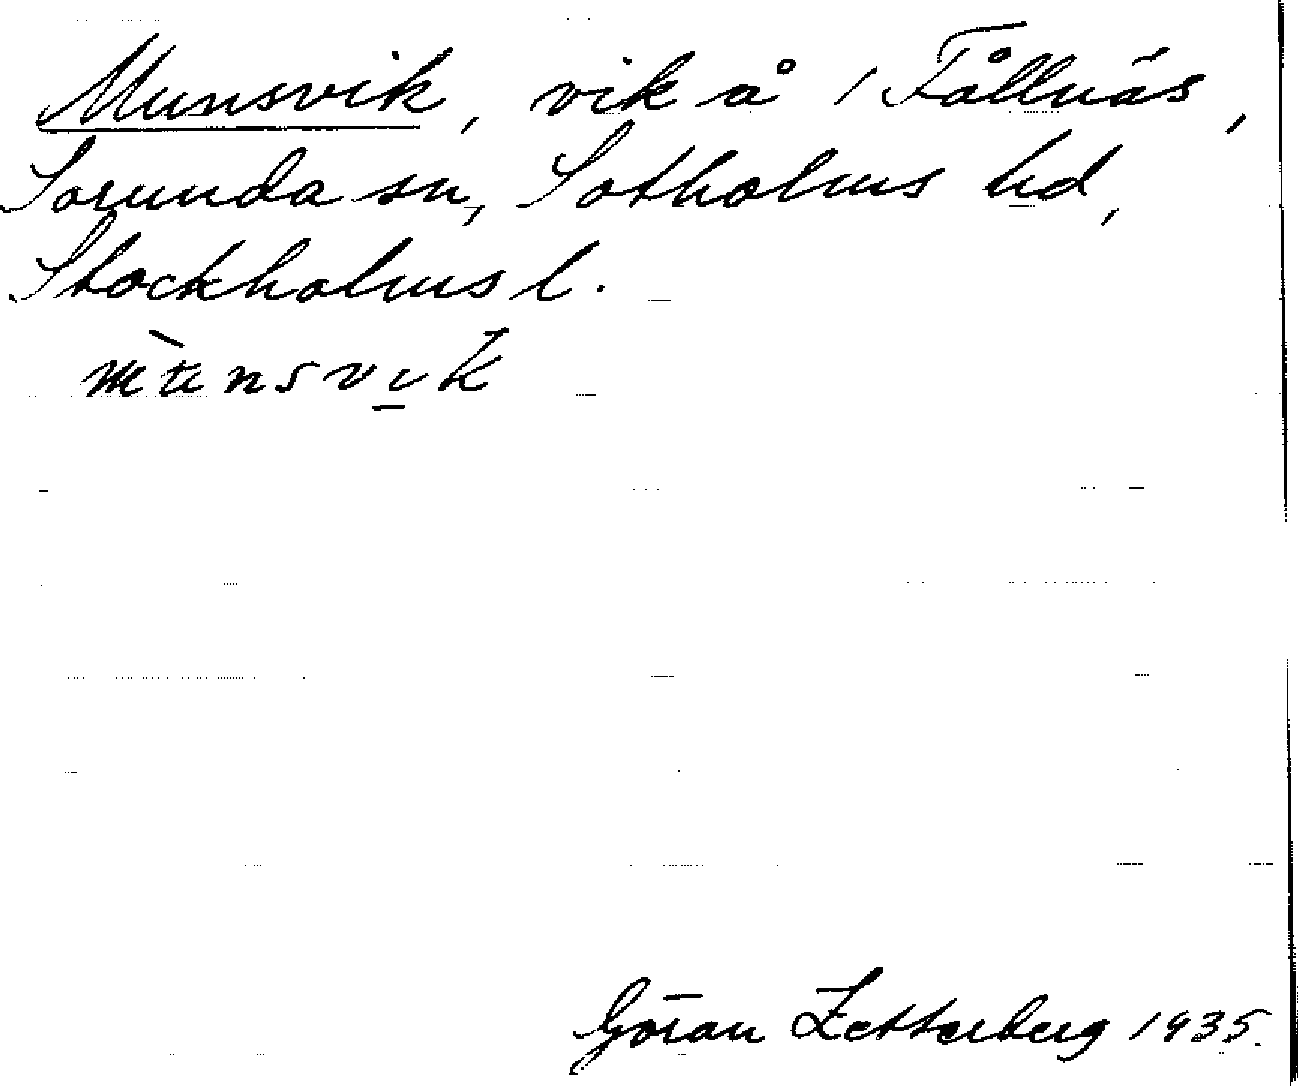 Munsvik, vik å 1 Fållnäs,
Sorunda sn, Sotholms hd,
Stockholms l.
mùnsvik
Göran Zetterberg 1935.